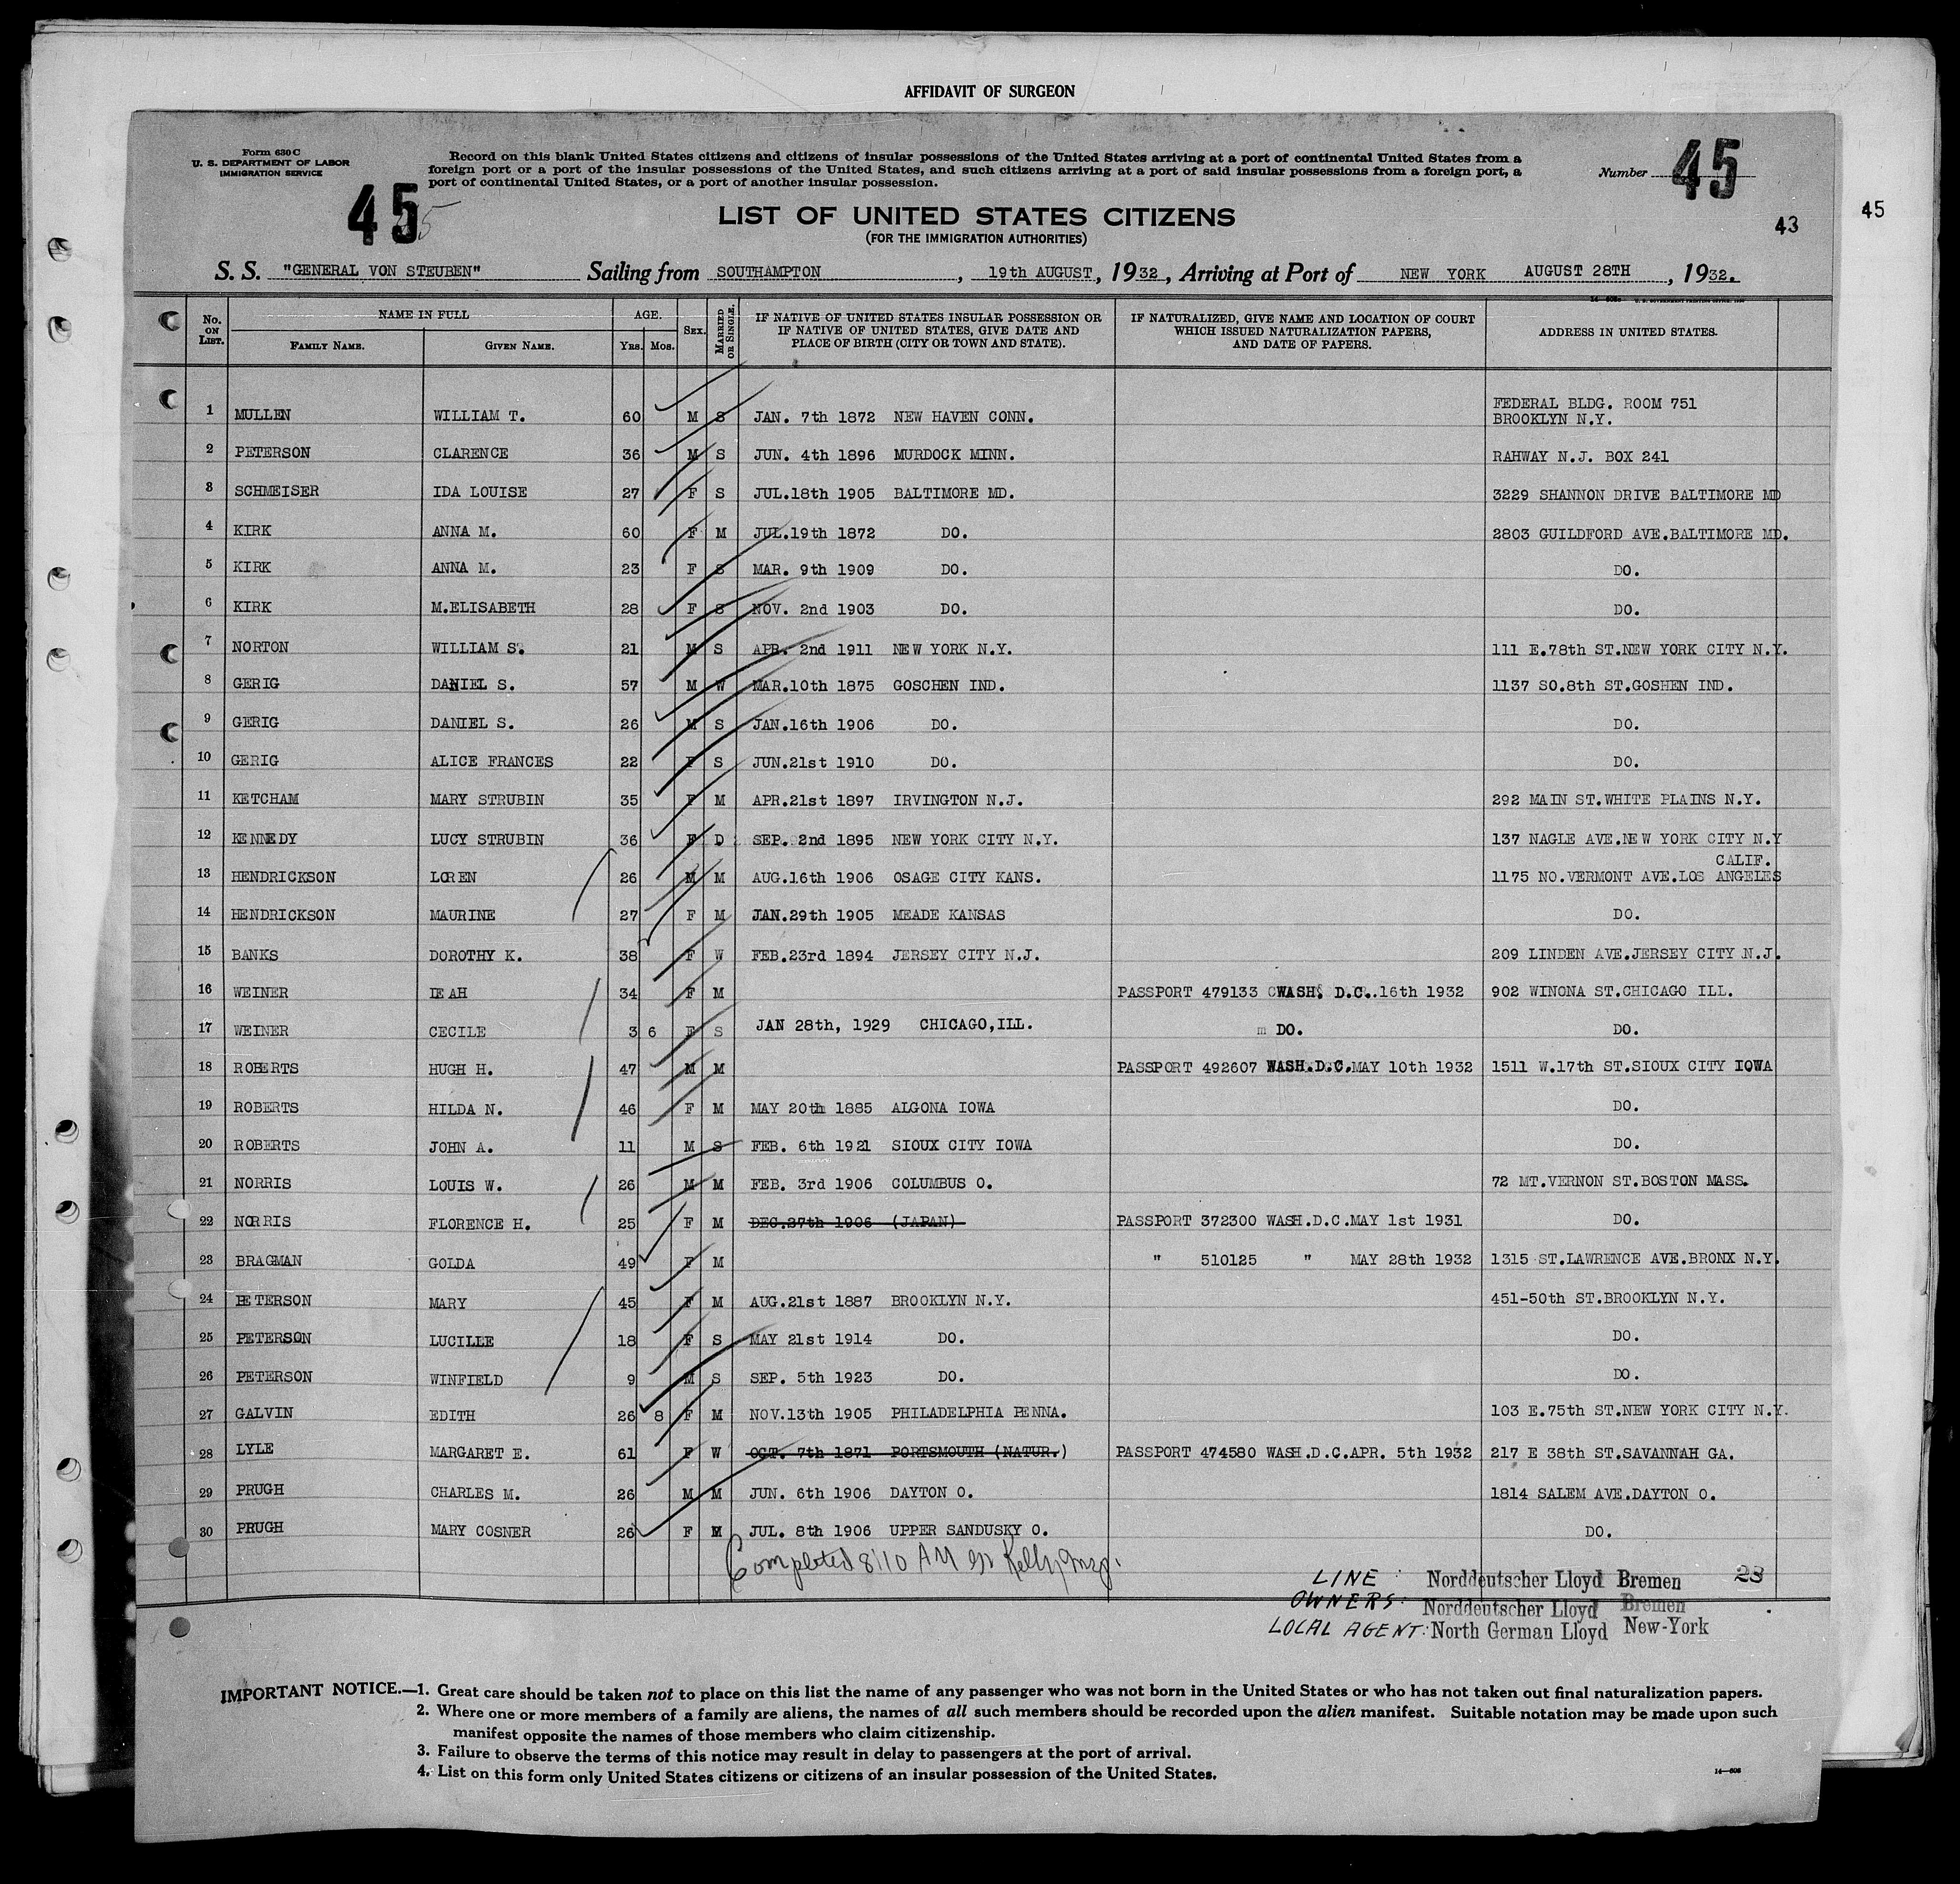 AFFIDAVIT OF SURGEON
Form 630 C
U. S. DEPARTMENT OF LABOR
IMMIGRATION SERVICE
Record on this blank United States citizens and citizens of insular possessions of the United States arriving at a port of continental United States from a
foreign port or a port of the insular possessions of the United States, and such citizens arriving at a port of said insular possessions from a foreign port, a
port of continental United States, or a port of another insular possession.
Number 45
45
43
45
LIST OF UNITED STATES CITIZENS
(FOR THE IMMIGRATION AUTHORITIES)
S. S. "GENERAL VON STEUBEN" Sailing from SOUTHAMPTON, 19th AUGUST, 1932, Arriving at Port of NEW YORK AUGUST 28TH, 1932.
No. ON LIST. NAME IN FULL FAMILY NAME. GIVEN NAME. AGE. YRS. MOS. SEX. MARRIED OR SINGLE. IF NATIVE OF UNITED STATES INSULAR POSSESSION OR IF NATIVE OF UNITED STATES, GIVE DATE AND PLACE OF BIRTH (CITY OR TOWN AND STATE). IF NATURALIZED, GIVE NAME AND LOCATION OF COURT WHICH ISSUED NATURALIZATION PAPERS, AND DATE OF PAPERS. ADDRESS IN UNITED STATES.
1 MULLEN WILLIAM T. 60 M S JAN. 7th 1872 NEW HAVEN CONN. FEDERAL BLDG. ROOM 751 BROOKLYN N.Y.
2 PETERSON CLARENCE 36 M S JUN. 4th 1896 MURDOCK MINN. RAHWAY N.J. BOX 241
3 SCHMEISER IDA LOUISE 27 F S JUL.18th 1905 BALTIMORE MD. 3229 SHANNON DRIVE BALTIMORE MD
4 KIRK ANNA M. 60 F M JUL.19th 1872 DO. 2803 GUILDFORD AVE.BALTIMORE MD.
5 KIRK ANNA M. 23 F S MAR. 9th 1909 DO. DO.
6 KIRK M.ELISABETH 28 F S NOV. 2nd 1903 DO. DO.
7 NORTON WILLIAM S. 21 M S APR. 2nd 1911 NEW YORK N.Y. 111 E.78th ST.NEW YORK CITY N.Y.
8 GERIG DANIEL S. 57 M W MAR.10th 1875 GOSCHEN IND. 1137 SO.8th ST.GOSHEN IND.
9 GERIG DANIEL S. 26 M S JAN.16th 1906 DO. DO.
10 GERIG ALICE FRANCES 22 F S JUN.21st 1910 DO. DO.
11 KETCHAM MARY STRUBIN 35 F M APR.21st 1897 IRVINGTON N.J. 292 MAIN ST.WHITE PLAINS N.Y.
12 KENNEDY LUCY STRUBIN 36 F D SEP. 2nd 1895 NEW YORK CITY N.Y. 137 NAGLE AVE.NEW YORK CITY N.Y
13 HENDRICKSON LOREN 26 M M AUG.16th 1906 OSAGE CITY KANS. 1175 NO.VERMONT AVE.LOS ANGELES CALIF.
14 HENDRICKSON MAURINE 27 F M JAN.29th 1905 MEADE KANSAS DO.
15 BANKS DOROTHY K. 38 F W FEB.23rd 1894 JERSEY CITY N.J. 209 LINDEN AVE.JERSEY CITY N.J.
16 WEINER LEAH 34 F M PASSPORT 479133 WASH. D.C. 16th 1932 902 WINONA ST.CHICAGO ILL.
17 WEINER CECILE 3 6 F S JAN 28th, 1929 CHICAGO,ILL. DO. DO.
18 ROBERTS HUGH H. 47 M M PASSPORT 492607 WASH.D.C.MAY 10th 1932 1511 W.17th ST.SIOUX CITY IOWA
19 ROBERTS HILDA N. 46 F M MAY 20th 1885 ALGONA IOWA DO.
20 ROBERTS JOHN A. 11 M S FEB. 6th 1921 SIOUX CITY IOWA DO.
21 NORRIS LOUIS W. 26 M M FEB. 3rd 1906 COLUMBUS O. 72 MT.VERNON ST.BOSTON MASS.
22 NORRIS FLORENCE H. 25 F M DEC.27th 1906 (JAPAN) PASSPORT 372300 WASH.D.C.MAY 1st 1931 DO.
23 BRAGMAN GOLDA 49 F M " 510125 " MAY 28th 1932 1315 ST.LAWRENCE AVE.BRONX N.Y.
24 PETERSON MARY 45 F M AUG.21st 1887 BROOKLYN N.Y. 451-50th ST.BROOKLYN N.Y.
25 PETERSON LUCILLE 18 F S MAY 21st 1914 DO. DO.
26 PETERSON WINFIELD 9 M S SEP. 5th 1923 DO. DO.
27 GALVIN EDITH 26 8 F M NOV.13th 1905 PHILADELPHIA PENNA. 103 E.75th ST.NEW YORK CITY N.Y.
28 LYLE MARGARET E. 61 F W OCT. 7th 1871 PORTSMOUTH (NATUR.) PASSPORT 474580 WASH.D.C.APR. 5th 1932 217 E 38th ST.SAVANNAH GA.
29 PRUGH CHARLES M. 26 M M JUN. 6th 1906 DAYTON O. 1814 SALEM AVE.DAYTON O.
30 PRUGH MARY COSNER 26 F M JUL. 8th 1906 UPPER SANDUSKY O. DO.
Completed 8:10 AM Kelly Insp.
LINE: Norddeutscher Lloyd Bremen 23
OWNERS: Norddeutscher Lloyd Bremen
LOCAL AGENT: North German Lloyd New-York
IMPORTANT NOTICE.—1. Great care should be taken not to place on this list the name of any passenger who was not born in the United States or who has not taken out final naturalization papers.
2. Where one or more members of a family are aliens, the names of all such members should be recorded upon the alien manifest. Suitable notation may be made upon such
manifest opposite the names of those members who claim citizenship.
3. Failure to observe the terms of this notice may result in delay to passengers at the port of arrival.
4. List on this form only United States citizens or citizens of an insular possession of the United States.